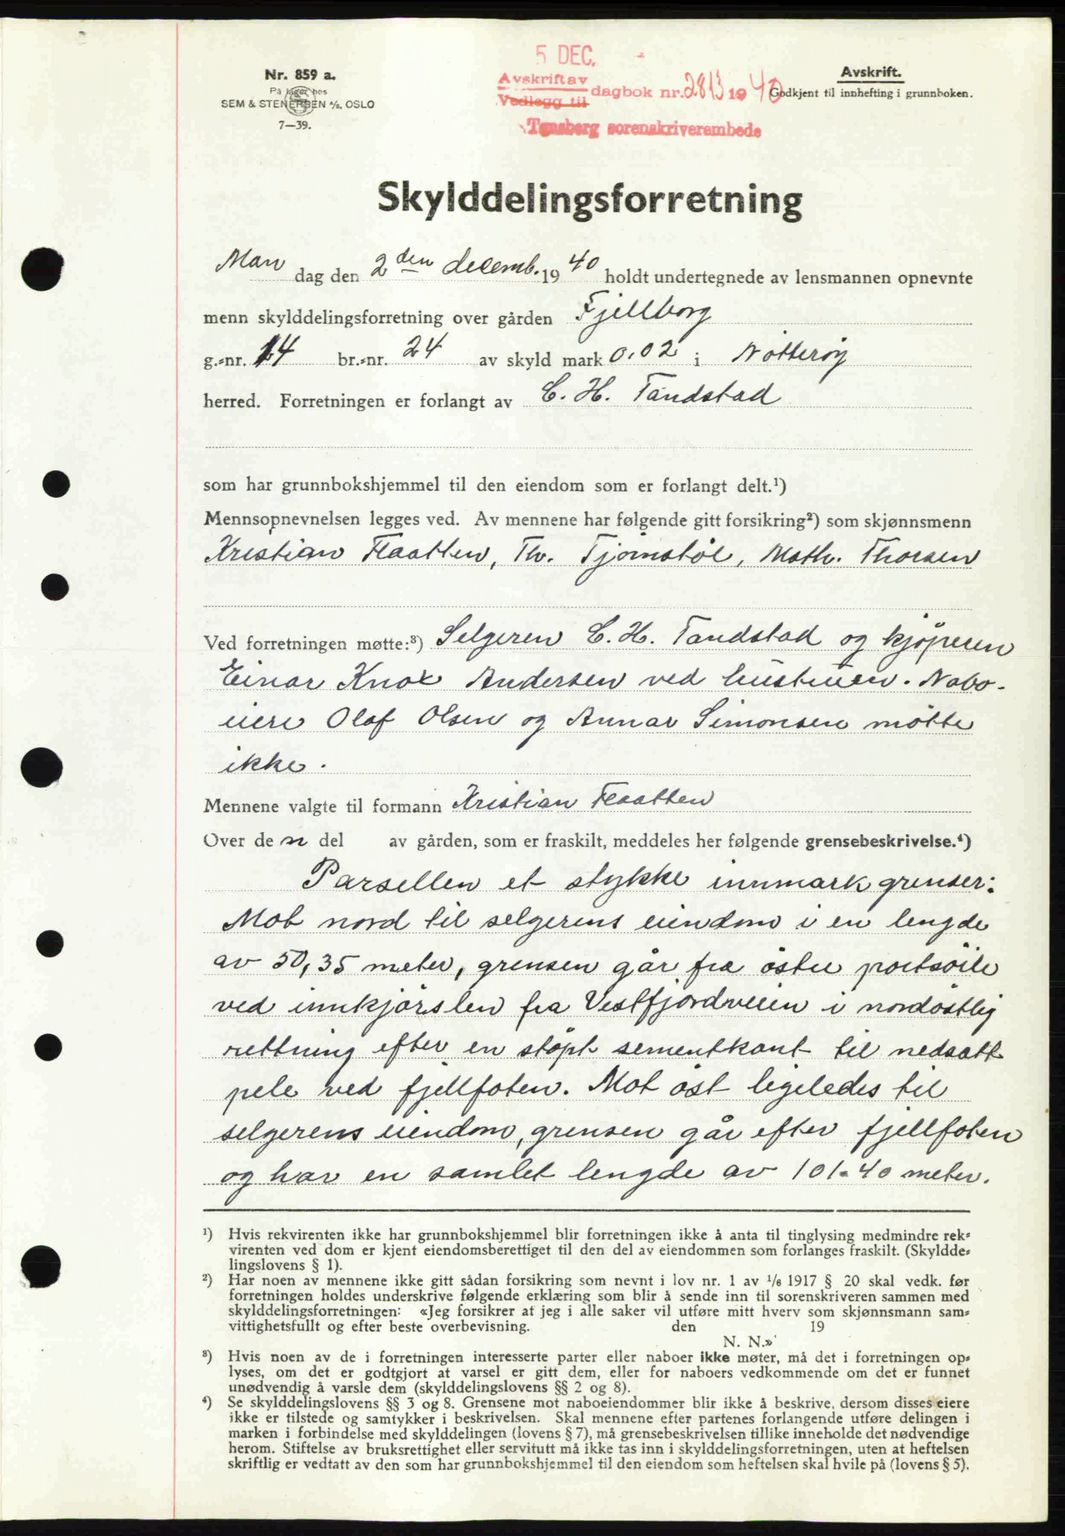 5 DEC.
Nr. 859 a.
På lager hos
SEM & STENERSEN A/S. OSLO
7—39.
Avskrift av
Vedlegg til
dagbok nr. 2813 1940
Tønsberg sorenskriverembede
Avskrift.
Godkjent til innhefting i grunnboken.
Skylddelingsforretning
Man dag den 2den decemb. 1940 holdt undertegnede av lensmannen opnevnte
menn skylddelingsforretning over gården Fjellborg
g.-nr. 14 br.-nr. 24 av skyld mark 0,02 i Nøtterøy
herred. Forretningen er forlangt av C. H. Tandstad
som har grunnbokshjemmel til den eiendom som er forlangt delt.¹)
Mennsopnevnelsen legges ved. Av mennene har følgende gitt forsikring²) som skjønnsmenn
Kristian Flaatten, Th. Tjömstöl, Math. Thorsen
Ved forretningen møtte:³) Selgeren C. H. Tandstad og kjöperen
Einar Knox Andersen ved hustruen. Nabo-
eiere Olaf Olsen og Annar Simonsen mötte
ikke.
Mennene valgte til formann Kristian Flaatten
Over den del av gården, som er fraskilt, meddeles her følgende grensebeskrivelse.⁴)
Parsellen et stykke innmark grenser:
Mot nord til selgerens eiendom i en lengde
av 50,35 meter, grensen går fra östre portsöile
ved innkjörslen fra Vestfjordveien i nordöstlig
rettning efter en stöpt sementkant til nedsatt
pele ved fjellfoten. Mot öst ligeledes til
selgerens eiendom, grensen går efter fjellfoten
og har en samlet lengde av 101.40 meter.
¹) Hvis rekvirenten ikke har grunnbokshjemmel blir forretningen ikke å anta til tinglysing medmindre rek-
virenten ved dom er kjent eiendomsberettiget til den del av eiendommen som forlanges fraskilt. (Skyldde-
lingslovens § 1).
²) Har noen av mennene ikke gitt sådan forsikring som nevnt i lov nr. 1 av 1/6 1917 § 20 skal vedk. før
forretningen holdes underskrive følgende erklæring som blir å sende inn til sorenskriveren sammen med
skylddelingsforretningen: «Jeg forsikrer at jeg i alle saker vil utføre mitt hverv som skjønnsmann sam-
vittighetsfullt og efter beste overbevisning. den 19
N. N.»
³) Hvis noen av de i forretningen interesserte parter eller naboer ikke møter, må det i forretningen op-
lyses, om det er godtgjort at varsel er gitt dem, eller for naboers vedkommende om det er funnet
unødvendig å varsle dem (skylddelingslovens §§ 2 og 8).
⁴) Se skylddelingslovens §§ 3 og 8. Grensene mot naboeiendommer blir ikke å beskrive, dersom disses eiere
ikke er tilstede og samtykker i beskrivelsen. Skal mennene efter partenes forlangende utføre delingen i
marken i forbindelse med skylddelingen (lovens § 7), må grensebeskrivelsen tillike inneholde det nødvendige
herom. Stiftelse av bruksrettighet eller servitutt må ikke tas inn i skylddelingsforretningen, uten at heftelsen
skriftlig er vedtatt av den som har grunnbokshjemmel til den eiendom som heftelsen skal hvile på (lovens § 5).